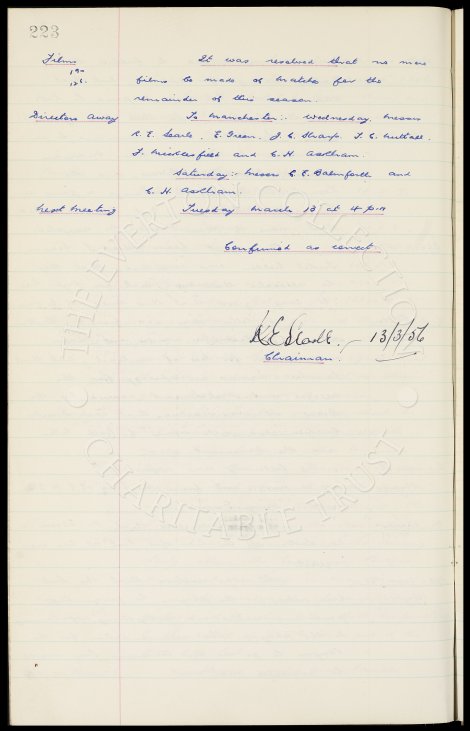 223
Films It was resolved that no more
190
125. films be made of matches for the
remainder of this season.
Directors Away To Manchester:- Wednesday, Messrs
R. E. Searle, E. Green, J. C. Sharp, F. E. Nuttall,
F. Micklesfield and C. H. Askham.
Saturday:- Messrs C. E. Balmforth and
C. H. Askham.
Next Meeting Tuesday March 13 at 4 p.m
Confirmed as correct
R E Searle. 13/3/56
Chairman.
THE EVERTON COLLECTION
CHARITABLE TRUST